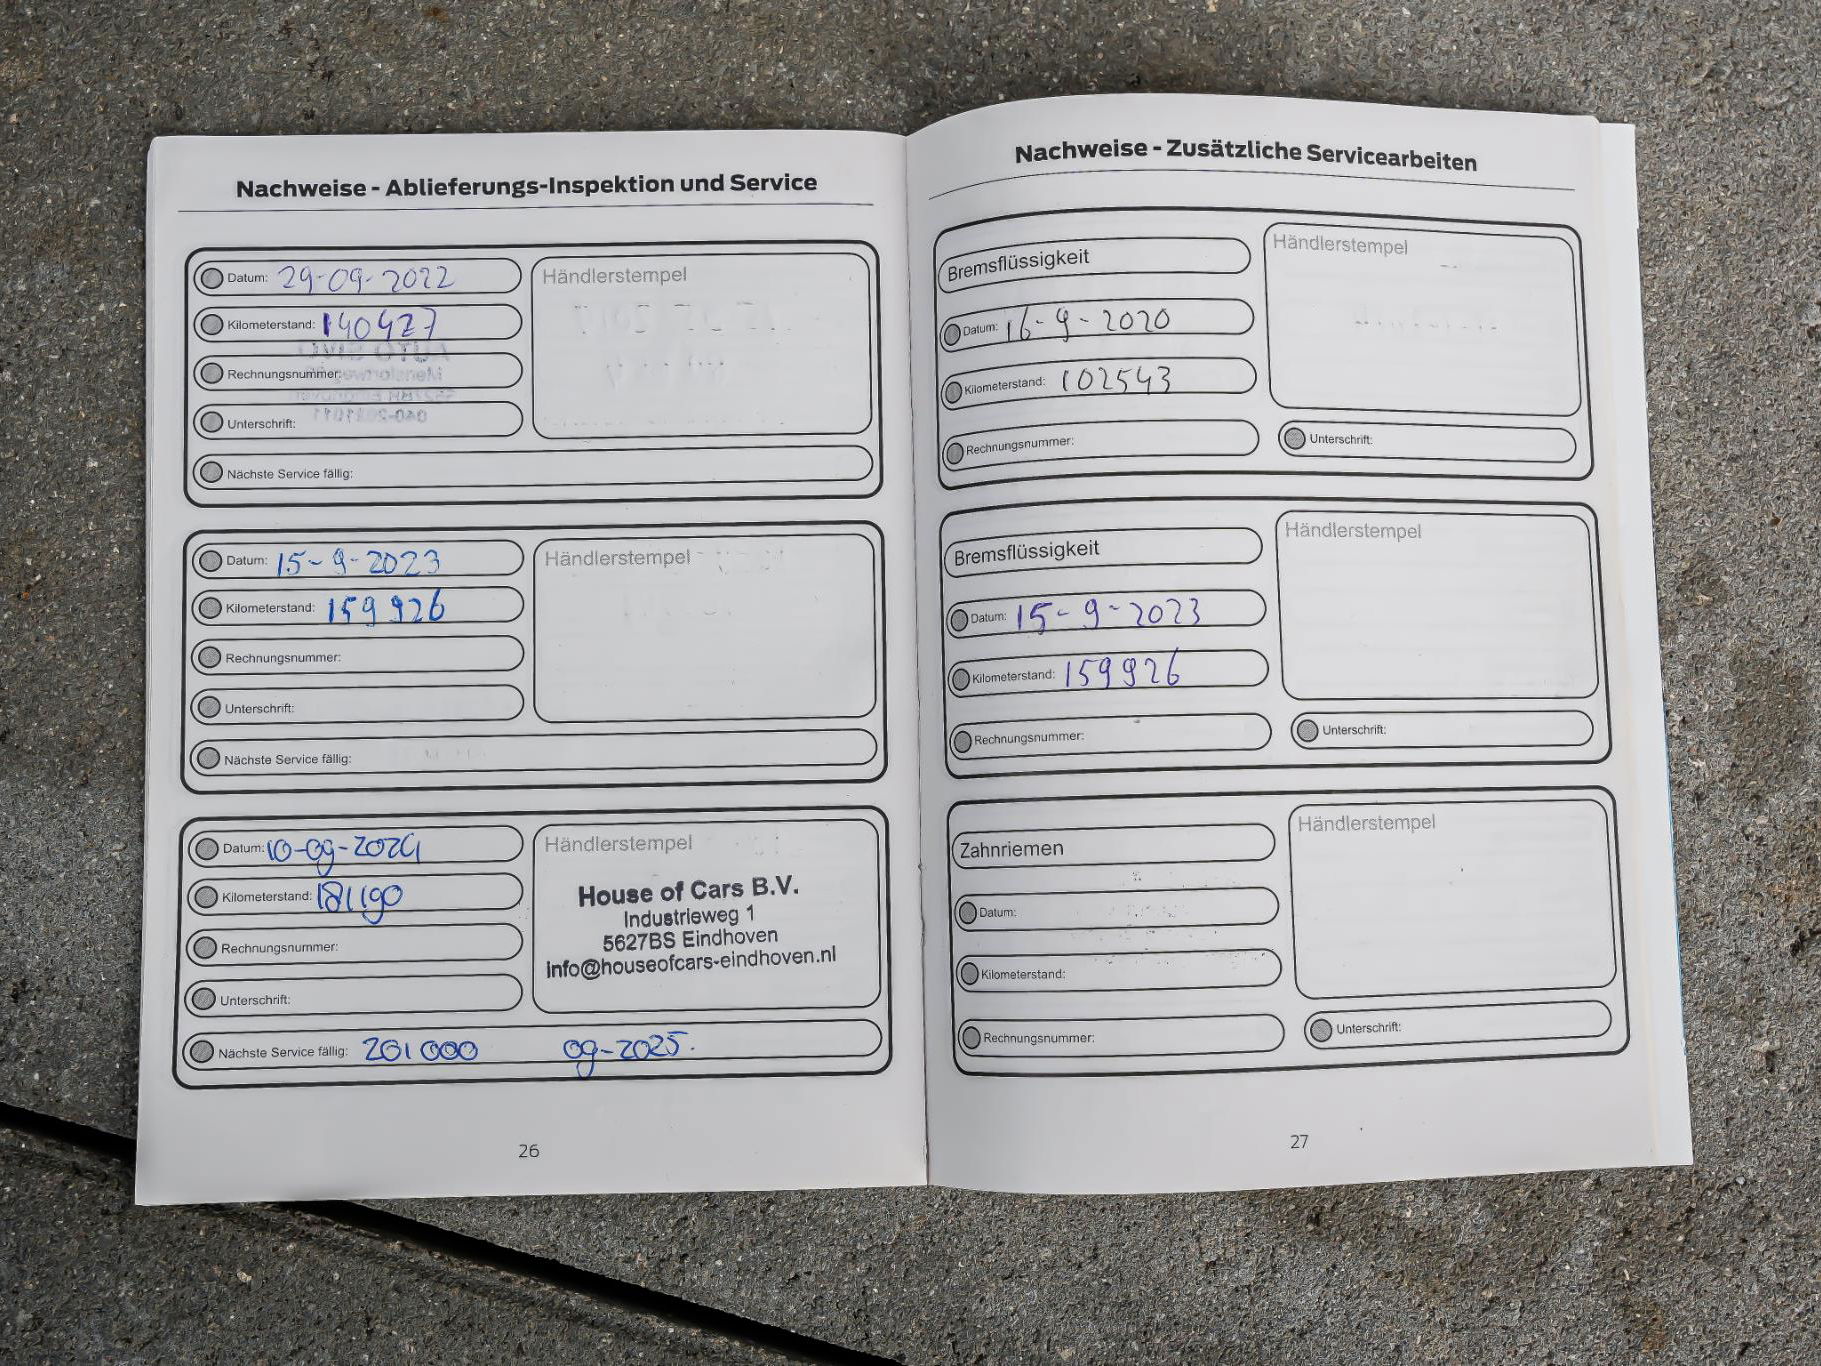 Nachweise - Ablieferungs-Inspektion und Service
Datum: 29-09-2022
Kilometerstand: 140427
Rechnungsnummer:
Unterschrift:
Nächste Service fällig:
Händlerstempel
Datum: 15-9-2023
Kilometerstand: 159926
Rechnungsnummer:
Unterschrift:
Nächste Service fällig:
Händlerstempel
Datum: 10-09-2024
Kilometerstand: 181190
Rechnungsnummer:
Unterschrift:
Nächste Service fällig: 201000 09-2025.
Händlerstempel
House of Cars B.V.
Industrieweg 1
5627BS Eindhoven
info@houseofcars-eindhoven.nl
26
Nachweise - Zusätzliche Servicearbeiten
Bremsflüssigkeit
Datum: 16-9-2020
Kilometerstand: 102543
Rechnungsnummer:
Händlerstempel
Unterschrift:
Bremsflüssigkeit
Datum: 15-9-2023
Kilometerstand: 159926
Rechnungsnummer:
Händlerstempel
Unterschrift:
Zahnriemen
Datum:
Kilometerstand:
Rechnungsnummer:
Händlerstempel
Unterschrift:
27